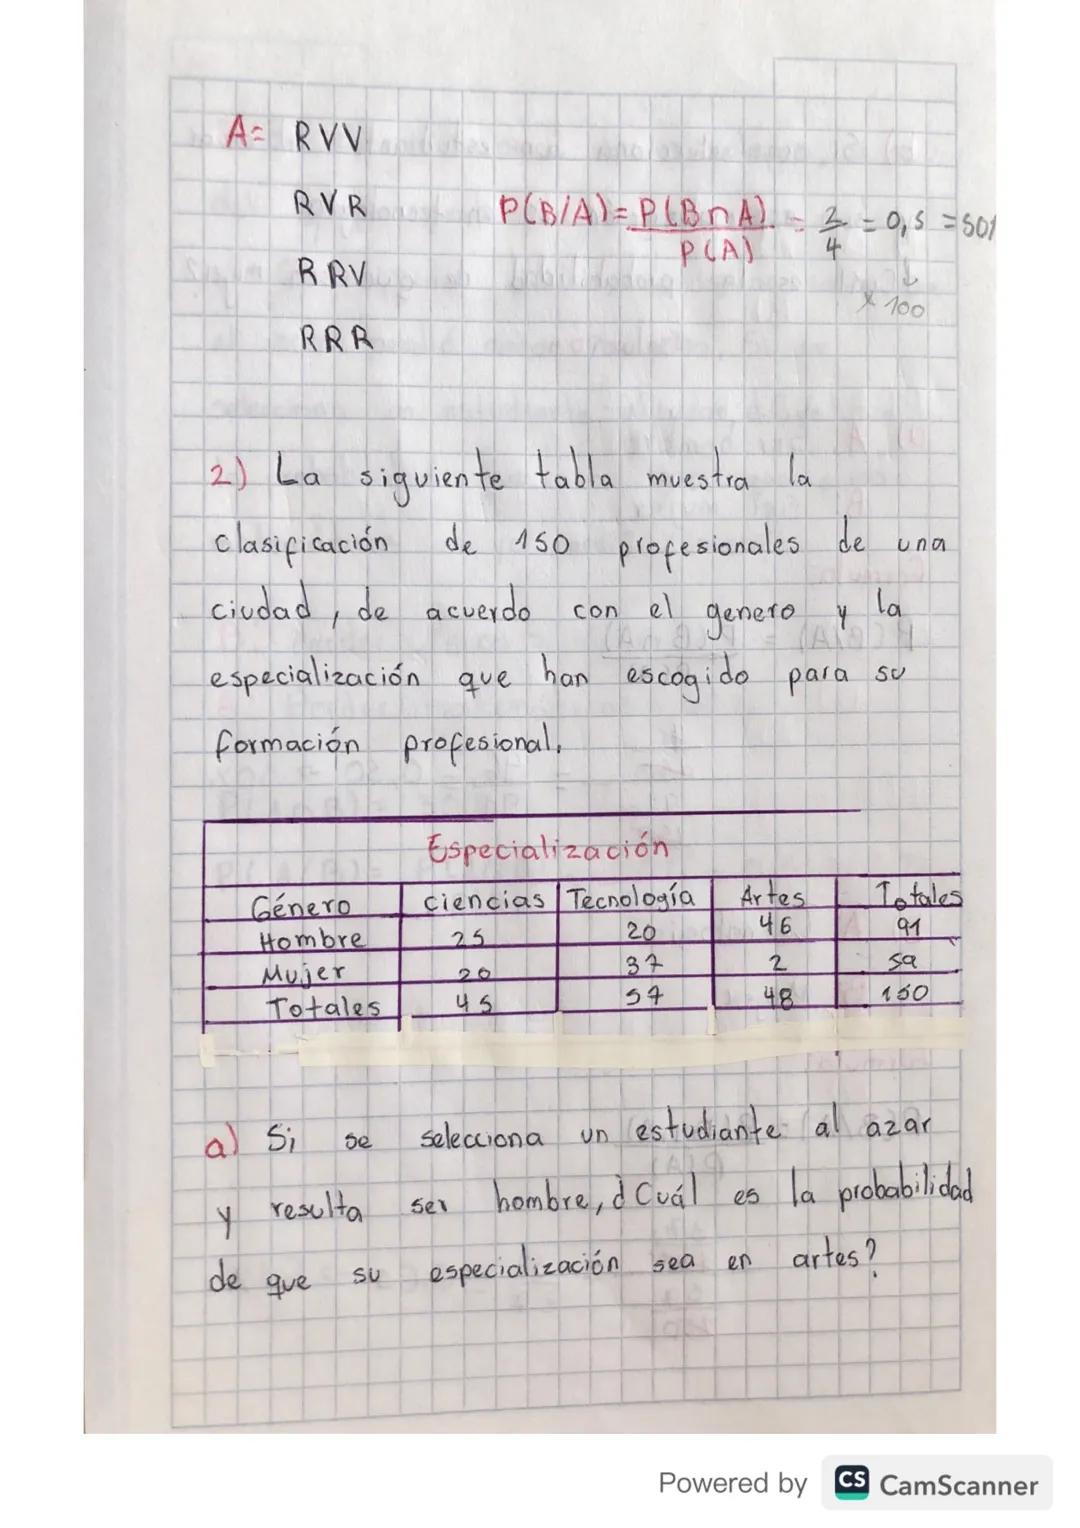 A= RVV
RVR
P(B/A)= P(B∩A) = 2 = 0,5 = 50%
P(A) 4
RRV
x 100
RRR
2) La siguiente tabla muestra la
clasificación de 150 profesionales de una
ciudad, de acuerdo con el genero y la
especialización que han escogido para su
formación profesional.
Especialización
Género ciencias Tecnología Artes Totales
Hombre 25 20 46 91
Mujer 20 37 2 59
Totales 45 57 48 150
a) Si se selecciona un estudiante al azar
y resulta ser hombre, ¿Cuál es la probabilidad
de que su especialización sea en artes?
Powered by CS CamScanner